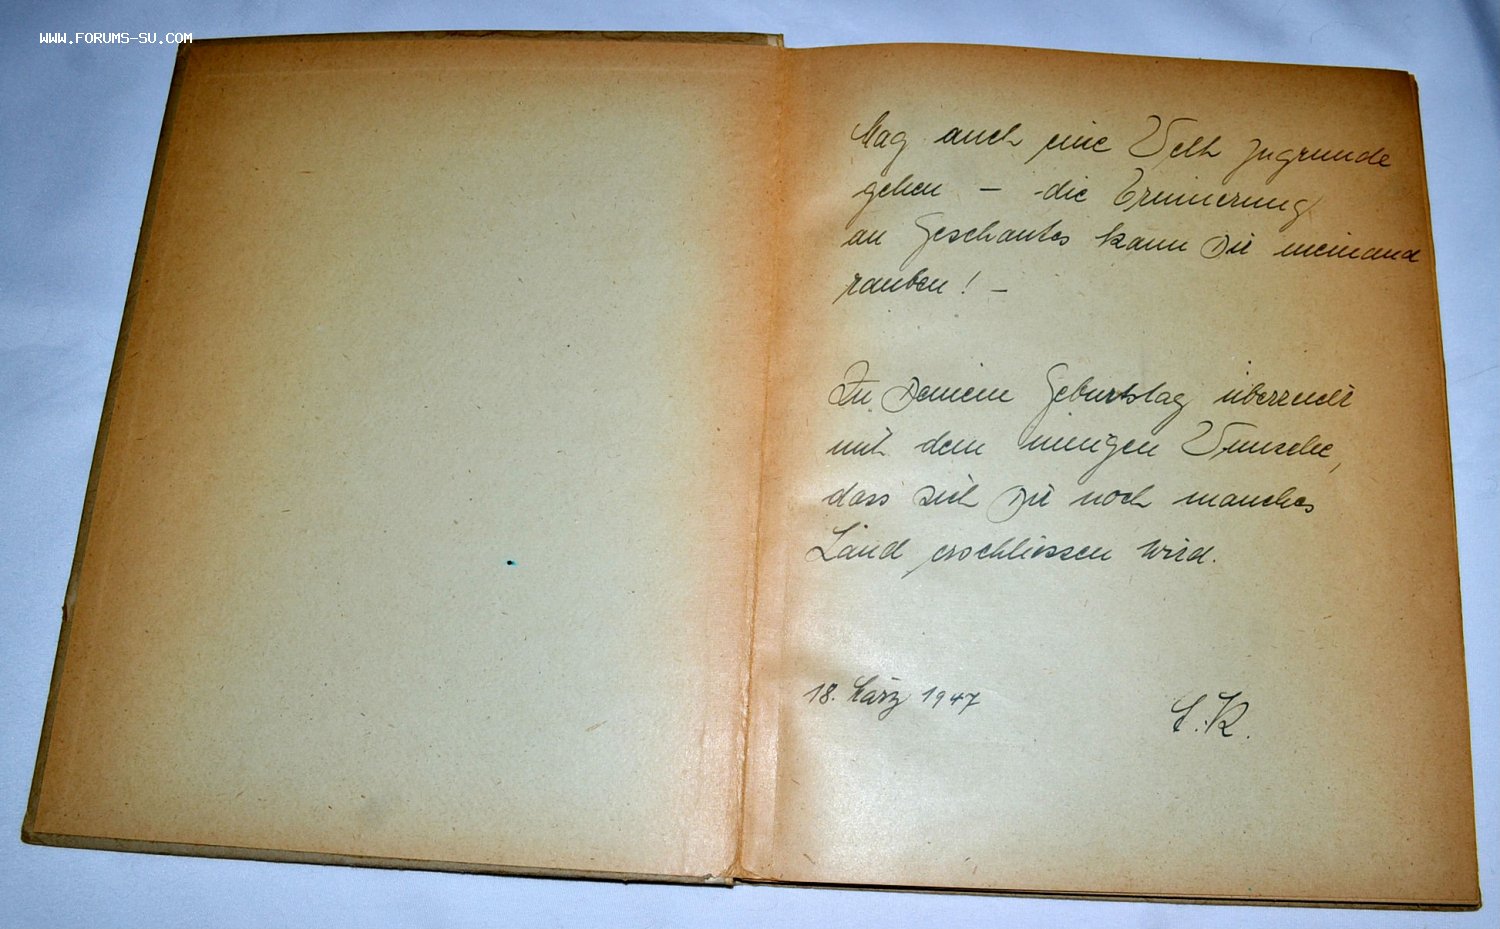 WWW.FORUMS-SU.COM
Mag auch eine Welt zugrunde
gehen – die Erinnerung
an Geschautes kann Dir niemand
rauben! –
Zu Deinem Geburtstag überreicht
mit dem innigen Wunsche,
dass sich Dir noch manches
Land erschliessen wird.
18. März 1947
E. K.